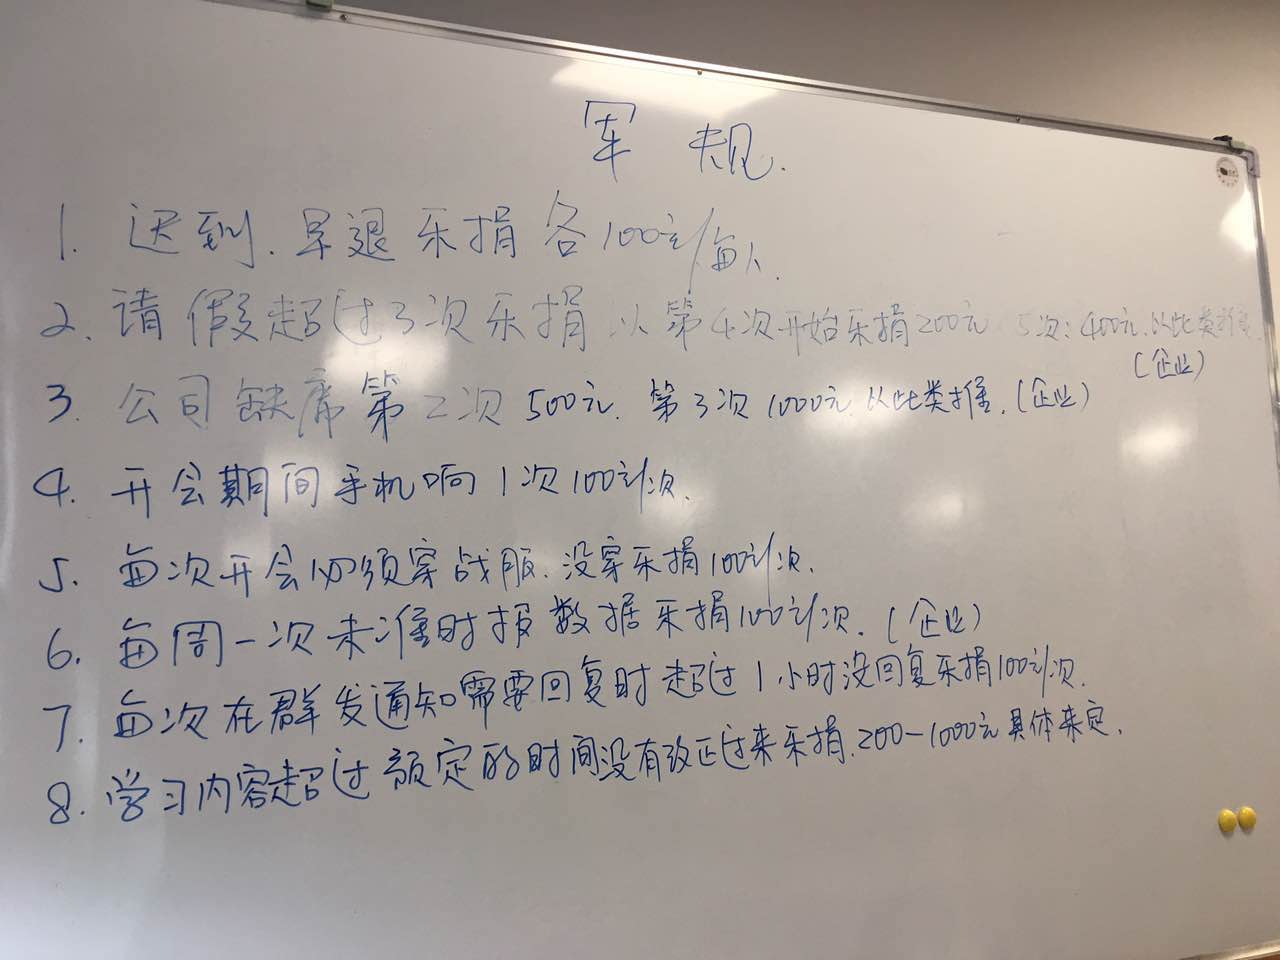 军规.
1. 迟到.早退乐捐各100元/每人.
2. 请假超过3次乐捐 以第4次开始乐捐200元 5次:400元.以此类推.
(企业)
3. 公司缺席第二次500元.第3次1000元.以此类推.(企业)
4. 开会期间手机响1次100元/次.
5. 每次开会必须穿战服.没穿乐捐100元/次.
6. 每周一次未准时报数据乐捐100元/次.(企业)
7. 每次在群发通知需要回复时超过1小时没回复乐捐100元/次.
8. 学习内容超过额定的时间没有改正过来乐捐.200-1000元具体来定.